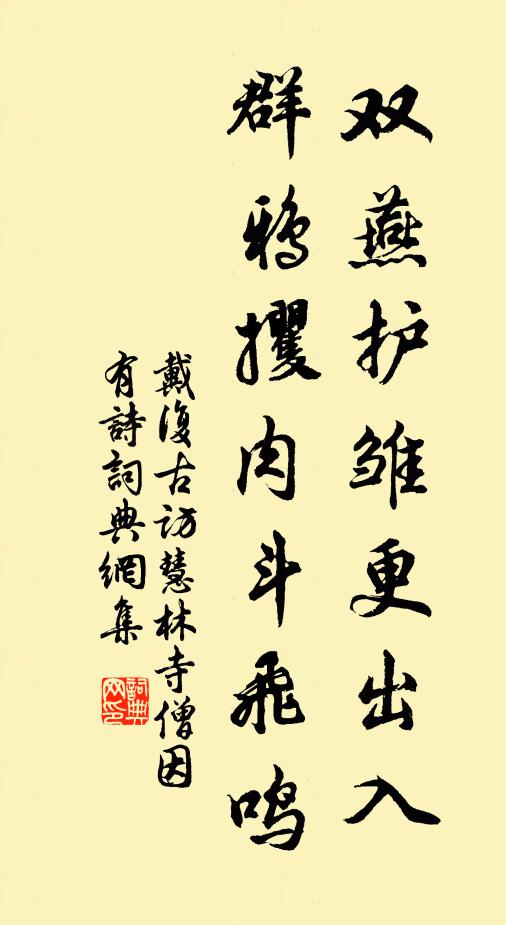 双燕护雏更出入
群鸦攫肉斗飛鸣
戴復古訪慧林寺僧因
有詩詞典網集
詞典
网印